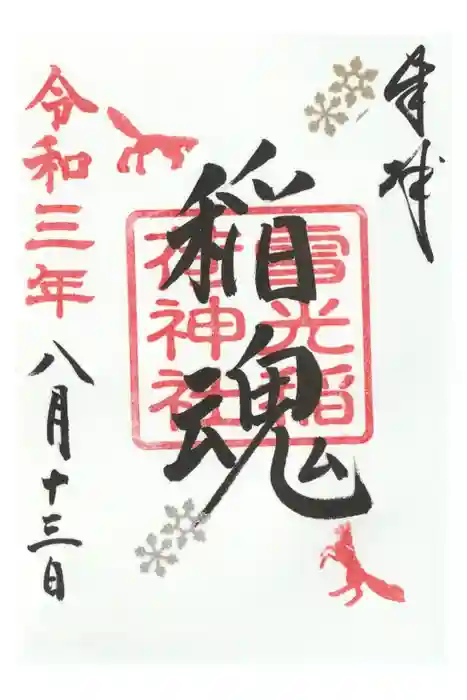 奉拝
稲魂
雪光稲
荷神社
令和三年八月十三日